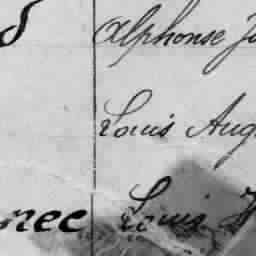 Alphonse
Louis Aug
nec Louis